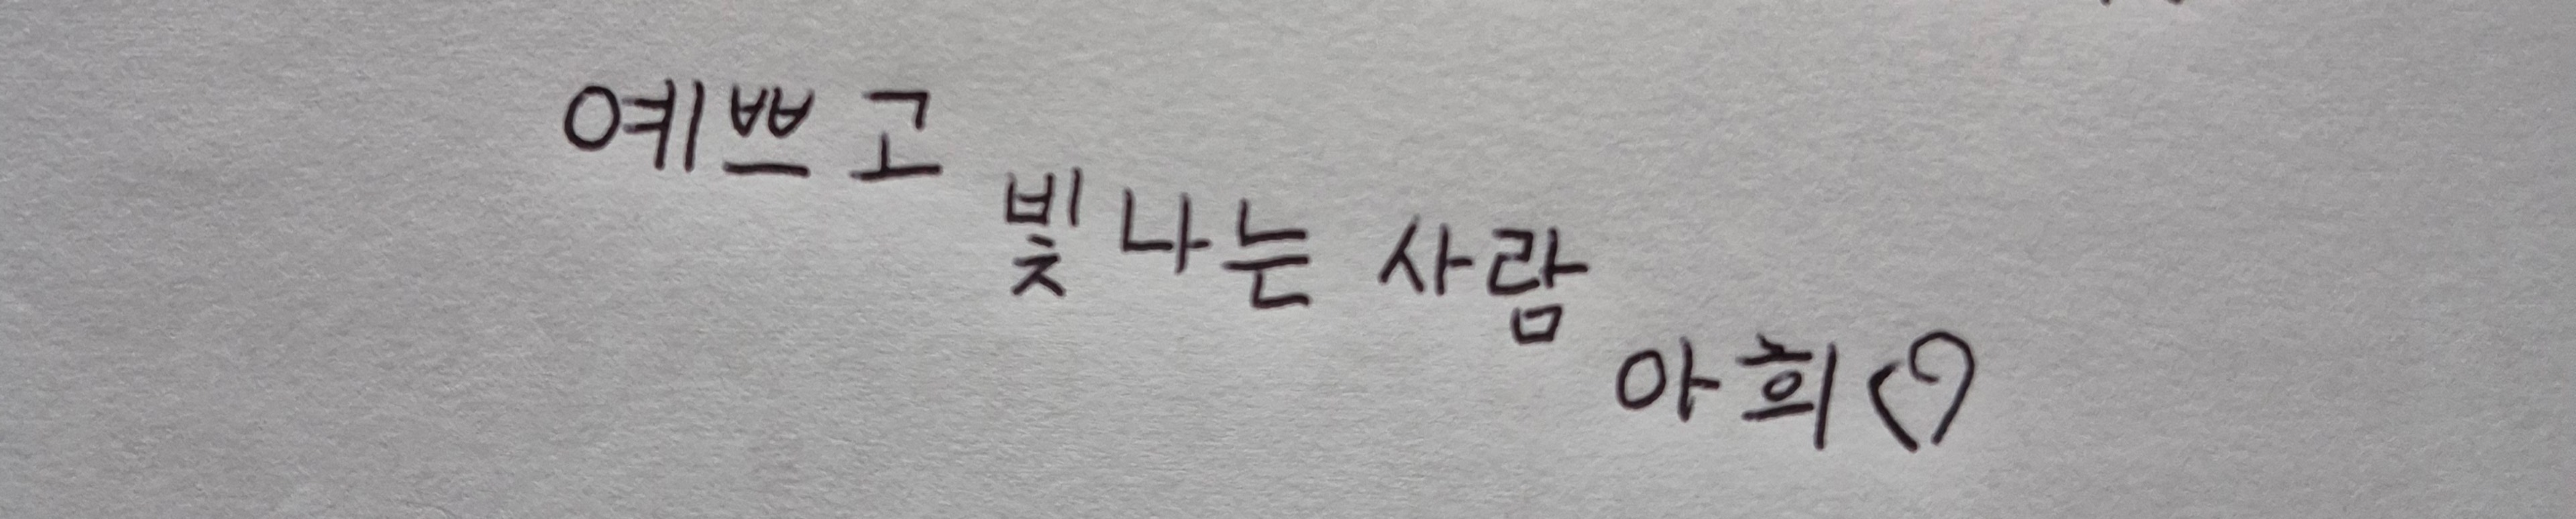 예쁘고
빛나는 사람
아희♡